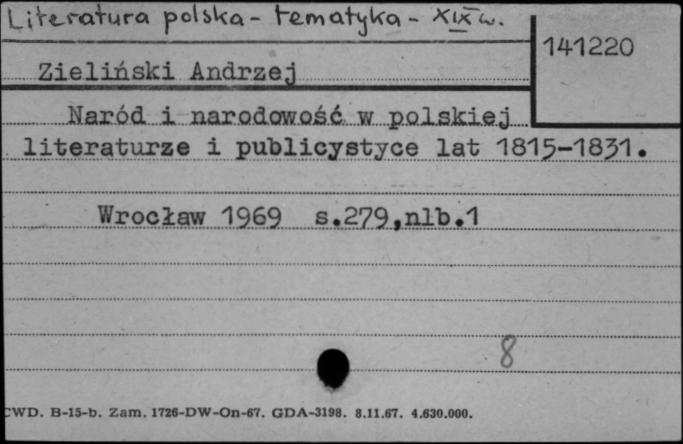 Literatura polska - tematyka - XIX w.
141220
Zieliński Andrzej
Naród i narodowość w polskiej
literaturze i publicystyce lat 1815-1831.
Wrocław 1969 s.279,nlb.1
8
CWD. B-15-b. Zam. 1726-DW-On-67. GDA-3198. 8.11.67. 4.630.000.